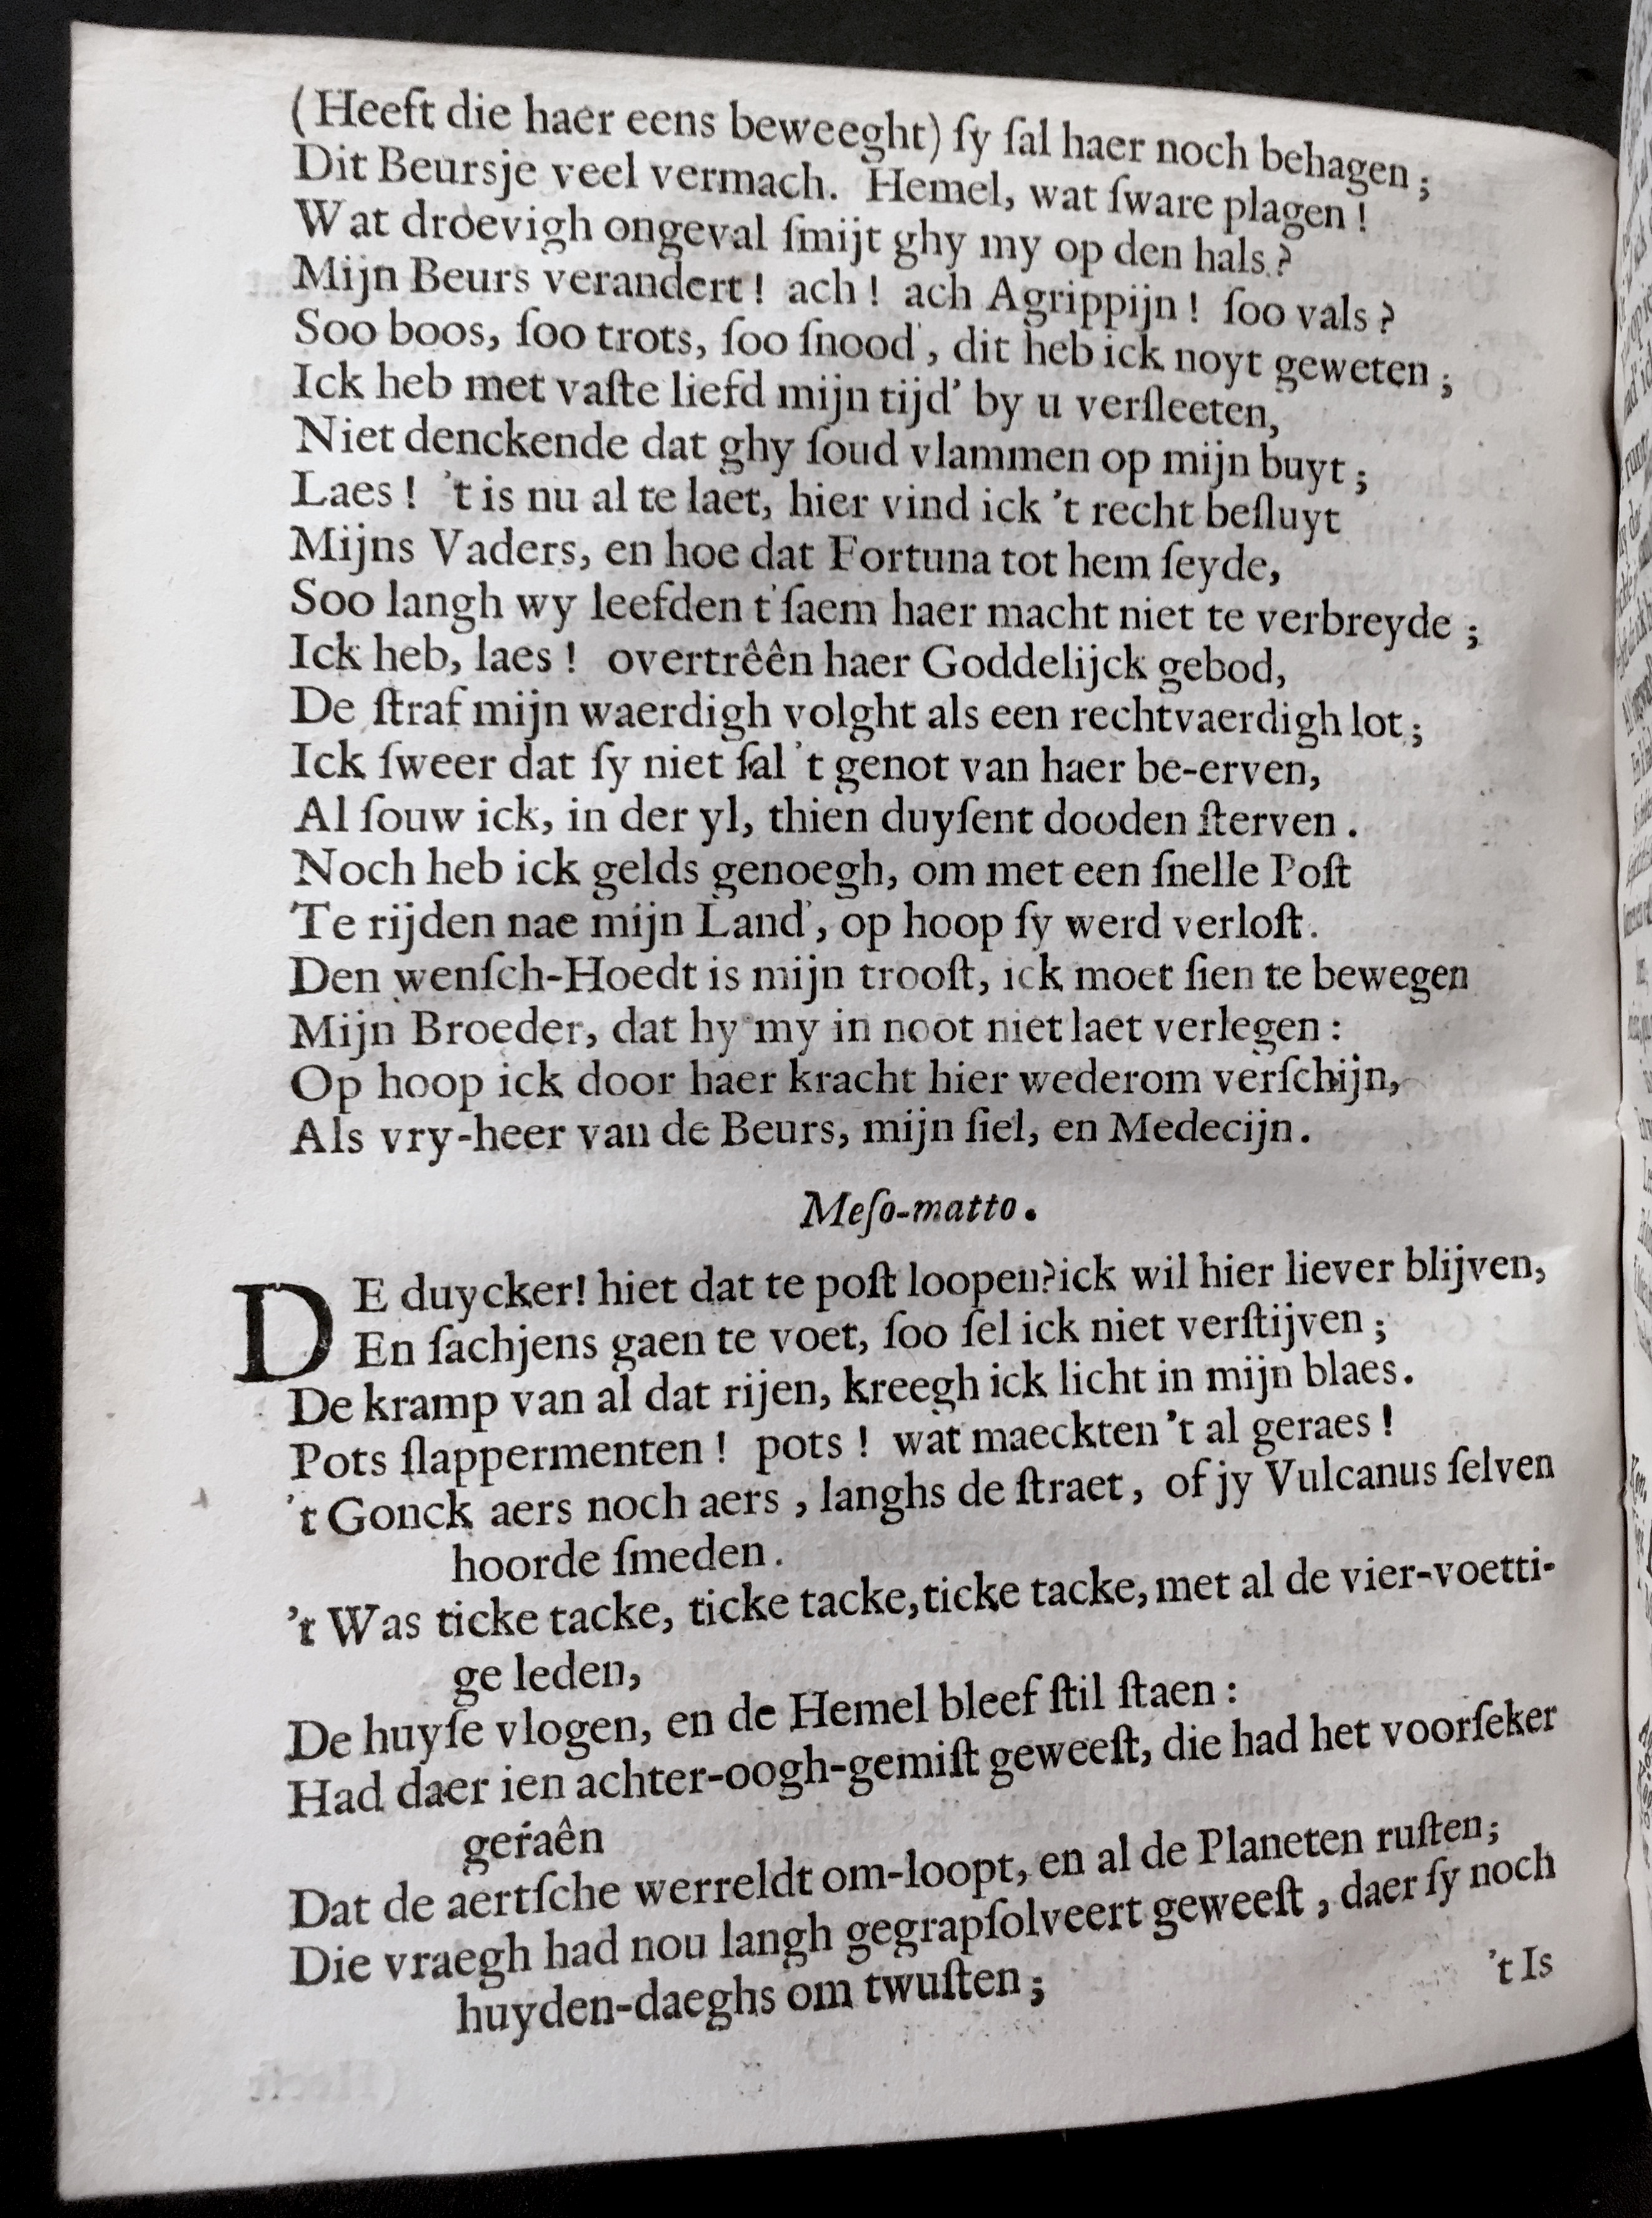 (Heeft die haer eens beweeght) ſy ſal haer noch behagen ;
Dit Beursje veel vermach. Hemel, wat ſware plagen !
Wat droevigh ongeval ſmijt ghy my op den hals ?
Mijn Beurs verandert ! ach ! ach Agrippijn ! ſoo vals ?
Soo boos, ſoo trots, ſoo ſnood', dit heb ick noyt geweten ;
Ick heb met vaſte liefd mijn tijd' by u verſleeten,
Niet denckende dat ghy ſoud vlammen op mijn buyt ;
Laes ! 't is nu al te laet, hier vind ick 't recht beſluyt
Mijns Vaders, en hoe dat Fortuna tot hem ſeyde,
Soo langh wy leefden t'ſaem haer macht niet te verbreyde ;
Ick heb, laes ! overtrêên haer Goddelijck gebod,
De ſtraf mijn waerdigh volght als een rechtvaerdigh lot ;
Ick ſweer dat ſy niet ſal 't genot van haer be-erven,
Al ſouw ick, in der yl, thien duyſent dooden ſterven .
Noch heb ick gelds genoegh, om met een ſnelle Poſt
Te rijden nae mijn Land', op hoop ſy werd verloſt .
Den wenſch-Hoedt is mijn trooſt, ick moet ſien te bewegen
Mijn Broeder, dat hy my in noot niet laet verlegen :
Op hoop ick door haer kracht hier wederom verſchijn,
Als vry-heer van de Beurs, mijn ſiel, en Medecijn .
Meſo-matto .
DE duycker! hiet dat te poſt loopen? ick wil hier liever blijven,
En ſachjens gaen te voet, ſoo ſel ick niet verſtijven ;
De kramp van al dat rijen, kreegh ick licht in mijn blaes .
Pots ſlappermenten ! pots ! wat maeckten 't al geraes !
't Gonck aers noch aers , langhs de ſtraet, of jy Vulcanus ſelven
hoorde ſmeden .
't Was ticke tacke, ticke tacke, ticke tacke, met al de vier-voetti-
ge leden,
De huyſe vlogen, en de Hemel bleef ſtil ſtaen :
Had daer ien achter-oogh-gemiſt geweeſt, die had het voorſeker
geraên
Dat de aertſche werreldt om-loopt, en al de Planeten ruſten;
Die vraegh had nou langh gegrapſolveert geweeſt , daer ſy noch
huyden-daeghs om twuſten ;
't Is